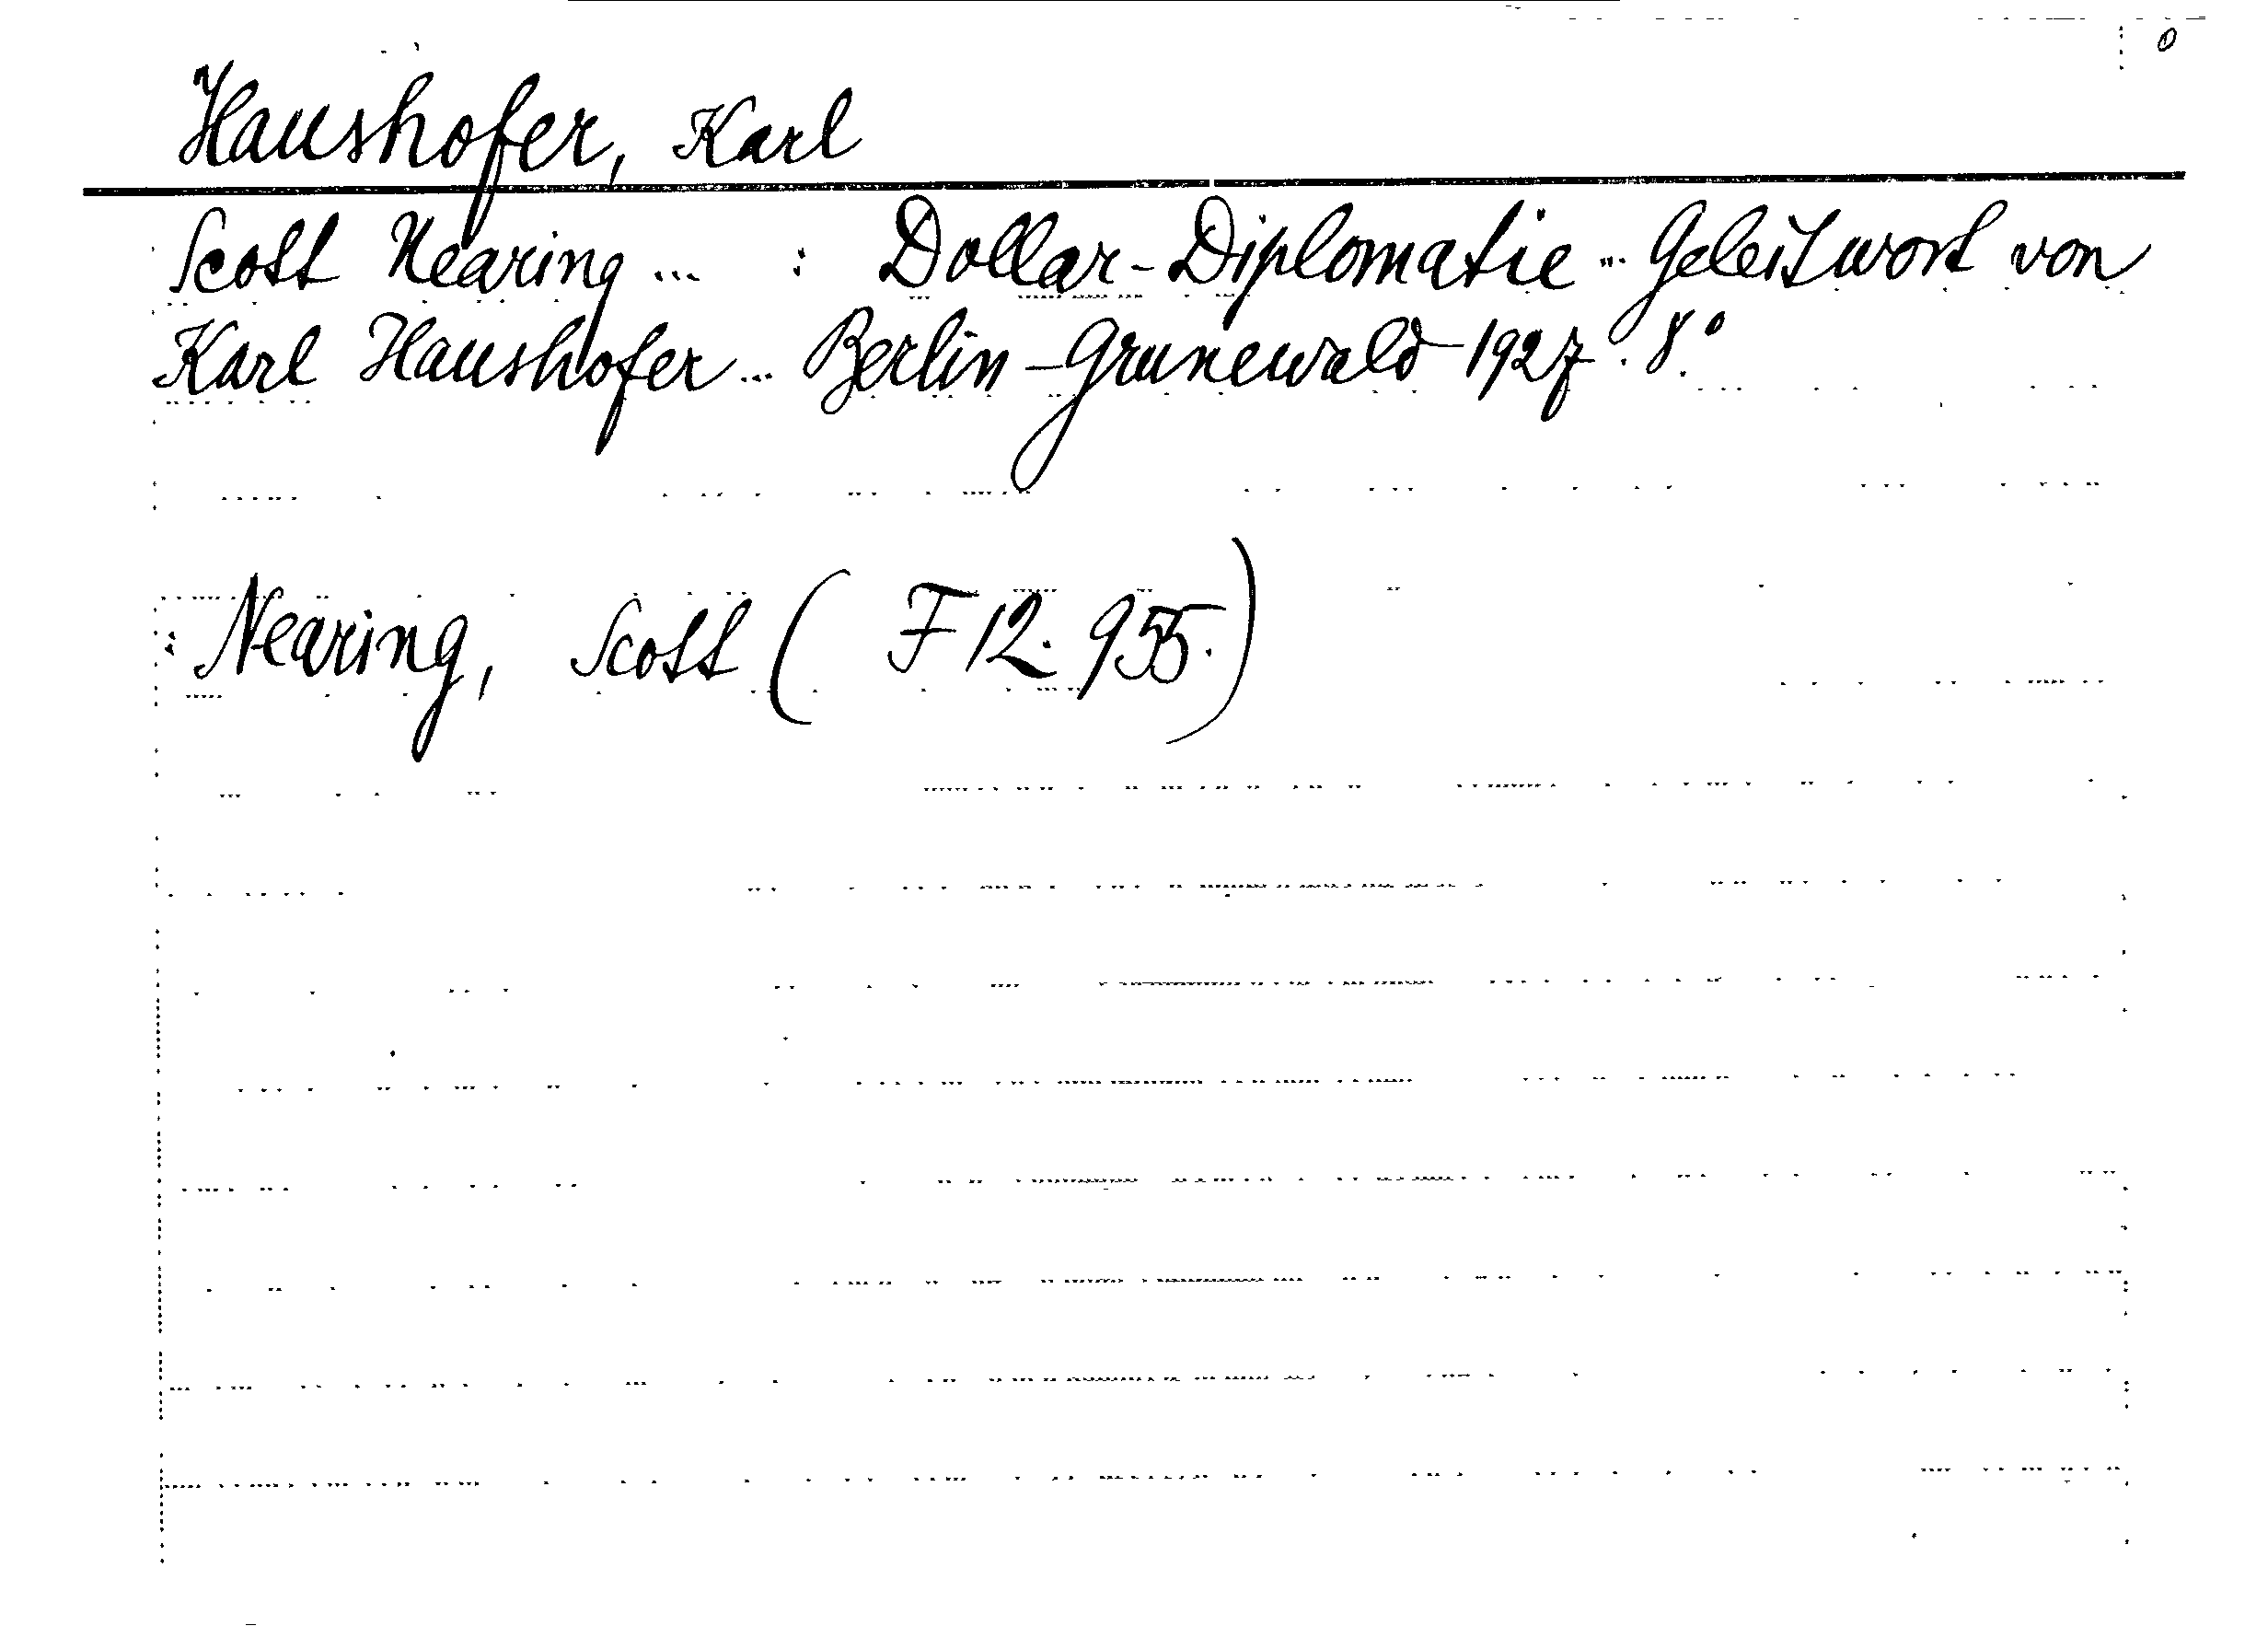 Haushofer, Karl
Scott Nearing ... : Dollar-Diplomatie ... Geleitwort von
Karl Haushofer ... Berlin-Grunewald 1927. 8°
: Nearing, Scott ( F 12. 955. )